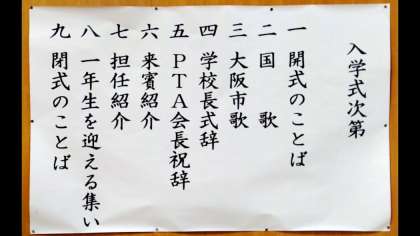 入学式次第
一 開式のことば
二 国歌
三 大阪市歌
四 学校長式辞
五 PTA会長祝辞
六 来賓紹介
七 担任紹介
八 一年生を迎える集い
九 閉式のことば